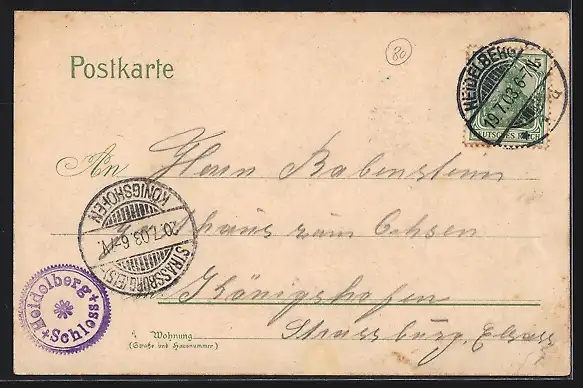 80
Postkarte
5
HEIDELBERG
19.7.03.6-7N.
DEUTSCHES REICH
An Herrn Rabenstein
haus zum Ochsen
KÖNIGSHOFEN
20.7.03.6-7V.
STRASSBURG (ELS)
Königshofen
Strassburg, Elsass
Heidelberg
Schloss
Wohnung
(Straße und Hausnummer)